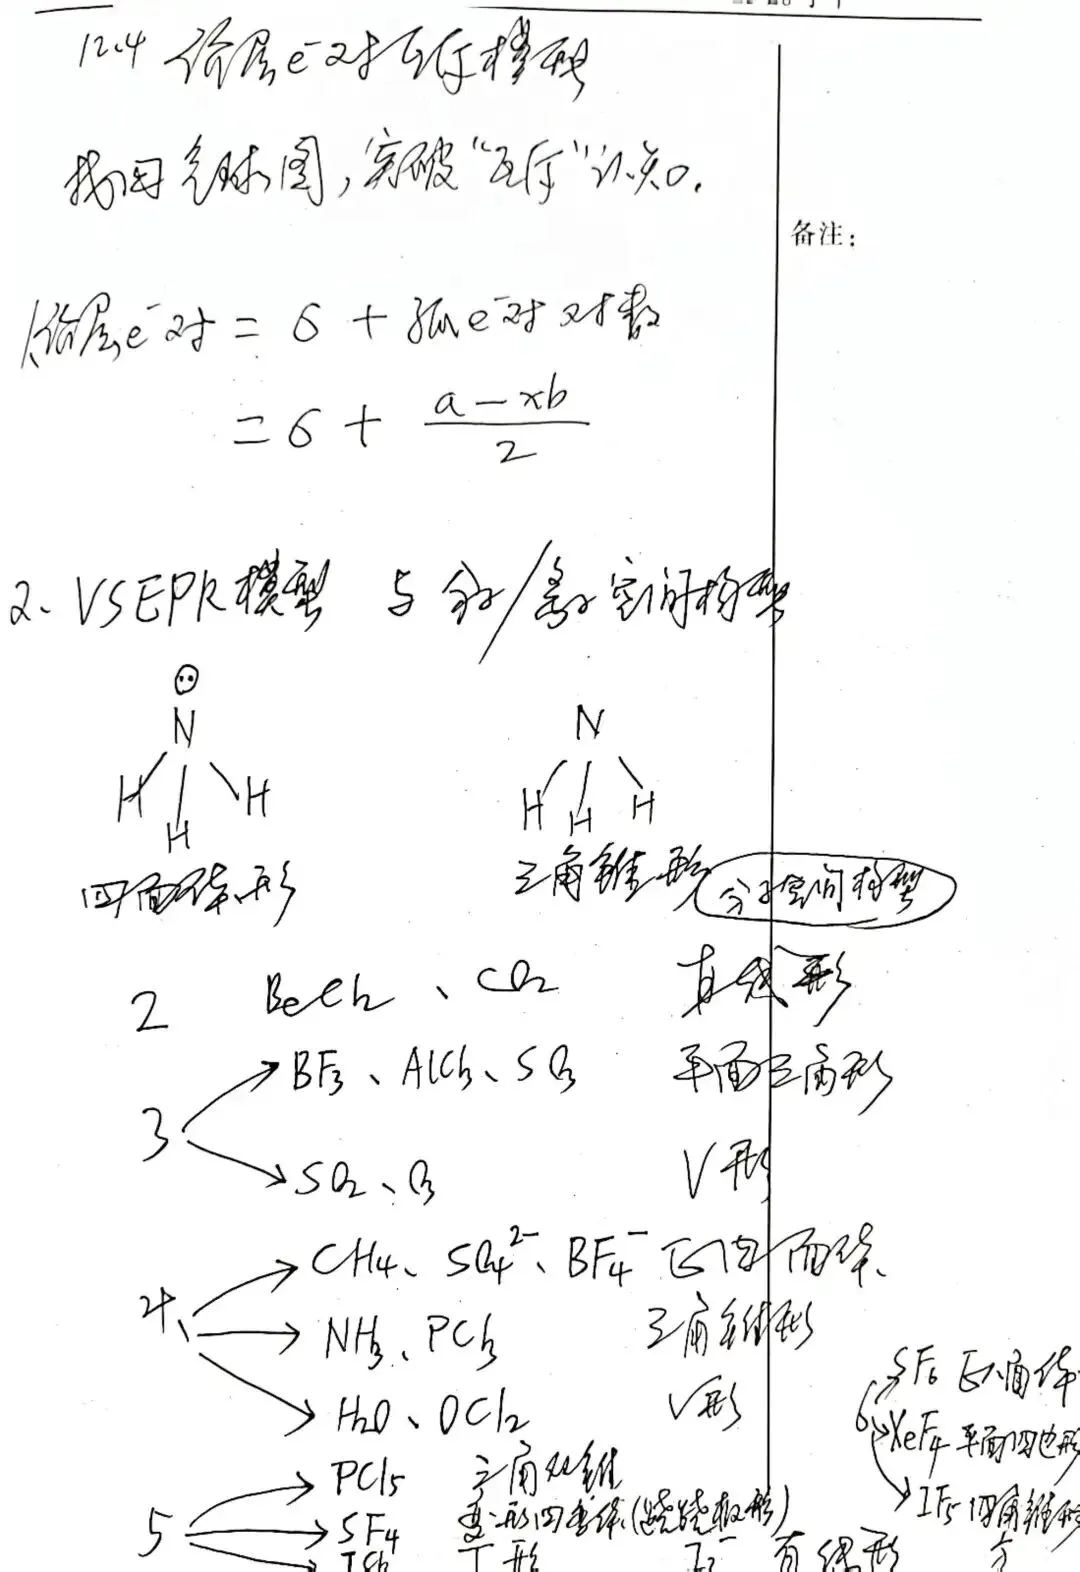 12.4 价层e⁻对互斥模型
找用气球图,突破“互斥”认知.
备注:
价层e⁻对 = σ + 孤e⁻对对数
= σ + (a-xb)/2
2、VSEPR模型 与 分子/离子空间构型
N N
H H H H H H
四面体形 三角锥形 分子空间构型
2 BeCl₂、CO₂ 直线形
3 BF₃、AlCl₃、SO₃ 平面三角形
SO₂、O₃ V形
4、 CH₄、SO₄²⁻、BF₄⁻ 正四面体、
NH₃、PCl₃ 三角锥形
H₂O、OCl₂ V形
6 SF₆ 正八面体
XeF₄ 平面四边形
IF₅ 四角锥形
5 PCl₅ 三角双锥
SF₄ 变形四面体(跷跷板形)
T形 直线形